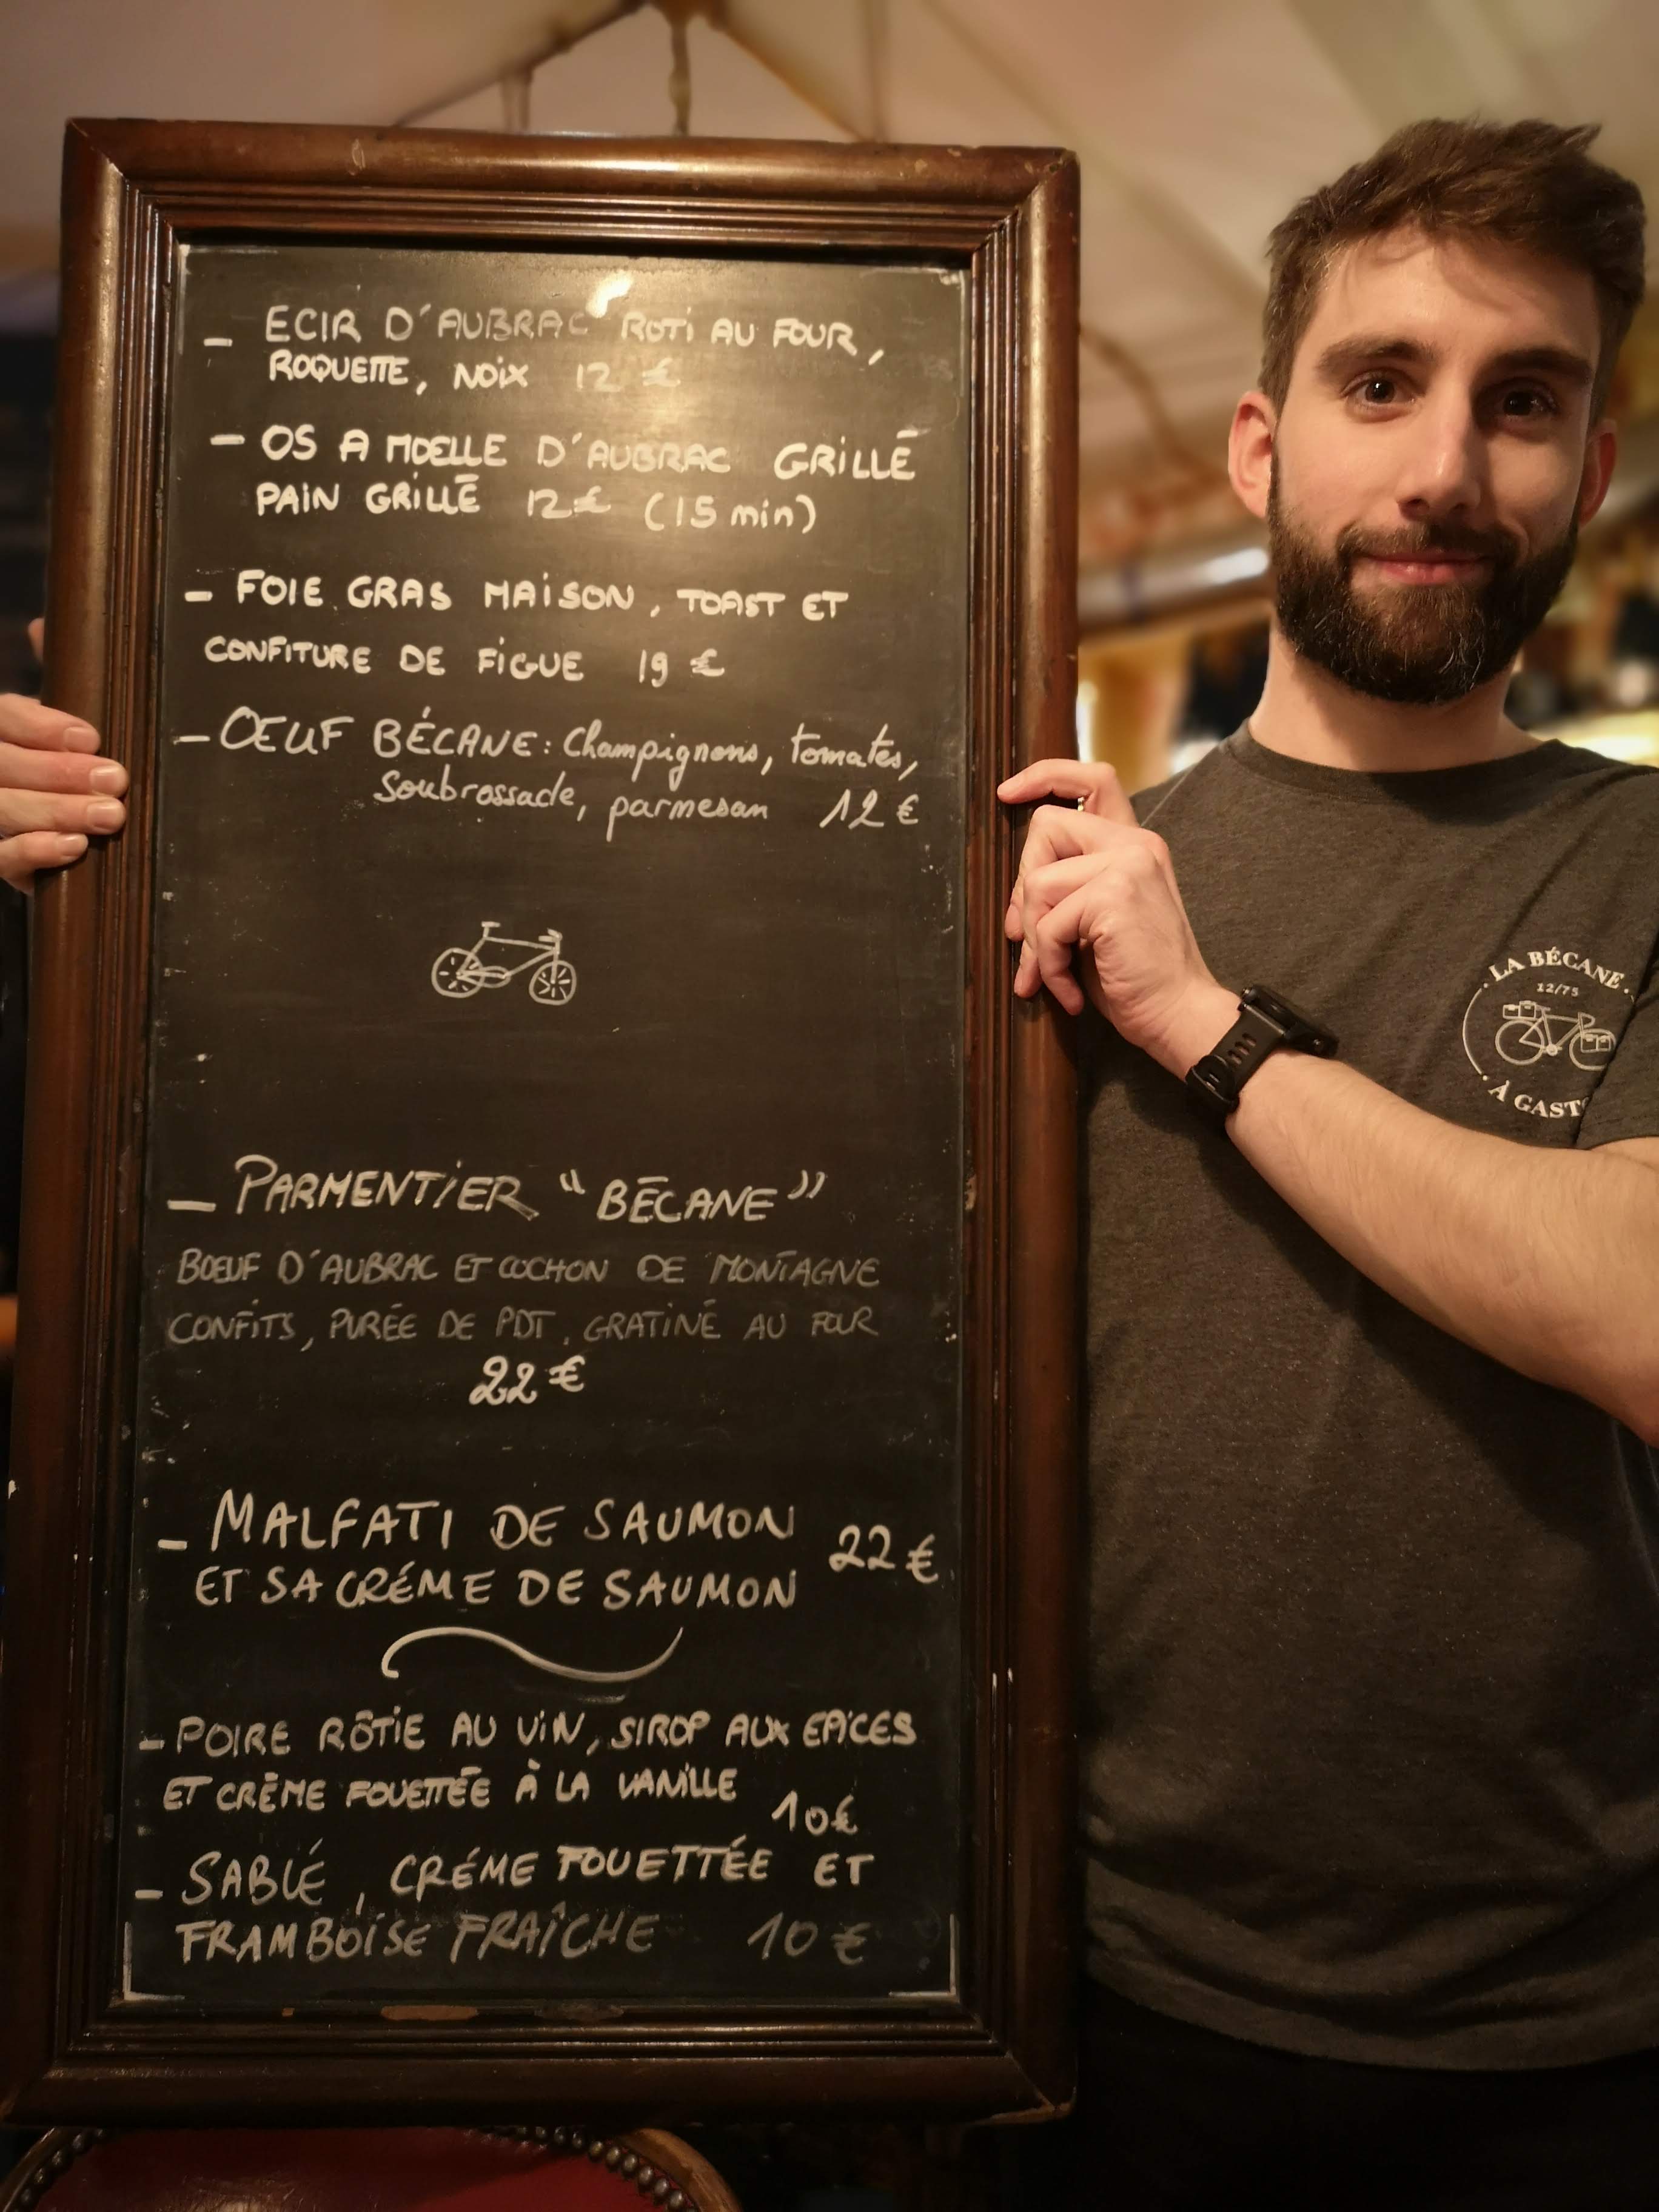 - ECIR D'AUBRAC ROTI AU FOUR,
ROQUETTE, NOIX 12 €
- OS A MOELLE D'AUBRAC GRILLÉ
PAIN GRILLÉ 12€ (15 min)
- FOIE GRAS MAISON, TOAST ET
CONFITURE DE FIGUE 19 €
- ŒUF BÉCANE: Champignons, tomates,
Soubrossade, parmesan 12 €
- PARMENTIER "BÉCANE"
BŒUF D'AUBRAC ET COCHON DE MONTAGNE
CONFITS, PURÉE DE PDT, GRATINÉ AU FOUR
22 €
- MALFATI DE SAUMON 22 €
ET SA CRÉME DE SAUMON
- POIRE RÔTIE AU VIN, SIROP AUX EPICES
ET CRÈME FOUETTÉE À LA VANILLE
10€
- SABLÉ, CRÉME FOUETTÉE ET
FRAMBOISE FRAÎCHE 10 €
· LA BÉCANE ·
12/75
· À GAST